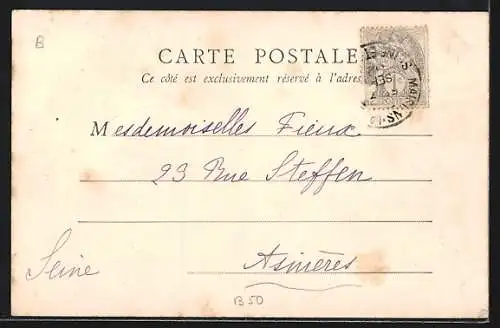 B
CARTE POSTALE
Ce côté est exclusivement réservé à l'adres
Mesdemoiselles Fieux
23 Rue Steffen
Asnières
Seine
B50